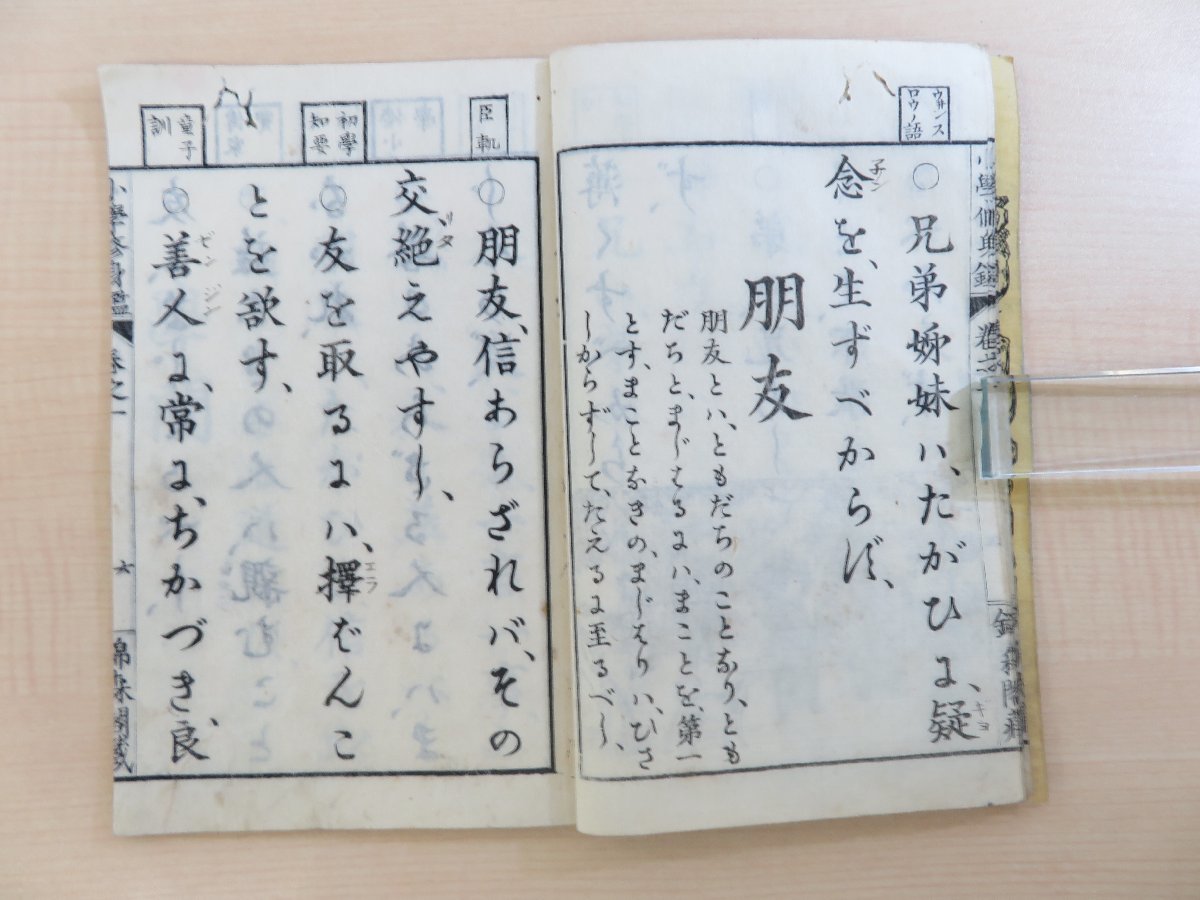 ウヰンス
ロウノ語
○兄弟姉妹ハ、たがひに、疑
念を、生ずべからず、
朋友
朋友とハ、ともだちのことなり、とも
だちと、まじはるにハ、まことを、第一
とす、まことなきの、まじはりハ、ひさ
しからずして、たえるに至るべし、
臣軌
○朋友、信あらざれバ、その
交、絶えやすし、
初學
知要
○友を取るにハ、擇ばんこ
とを欲す、
童子
訓
○善人に、常に、ちかづき、良
小學修身鑑
卷之一
六
錦森閣藏